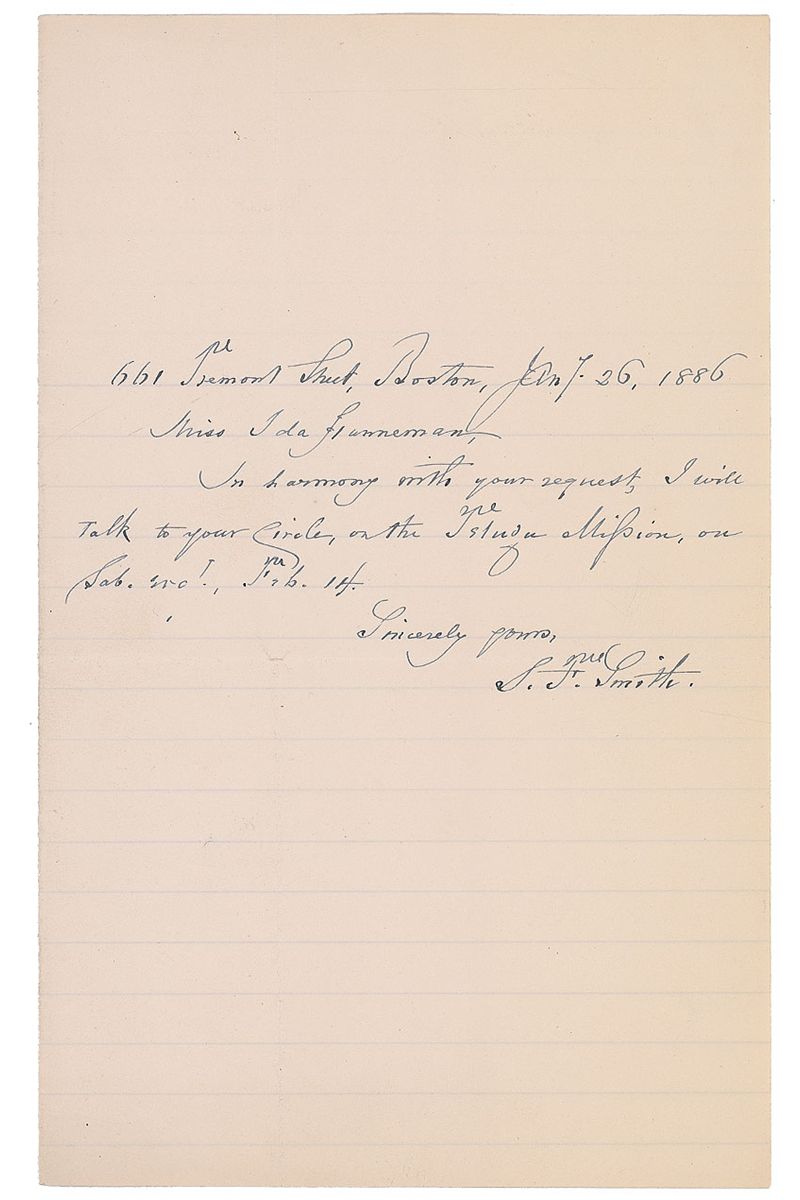 661 Tremont Street, Boston, Jany. 26, 1886
Miss Ida
In harmony with your request, I will
talk to your Circle, on the Telugu Mission, on
Sab. evg., Feb. 14.
Sincerely yours,
S. F. Smith.